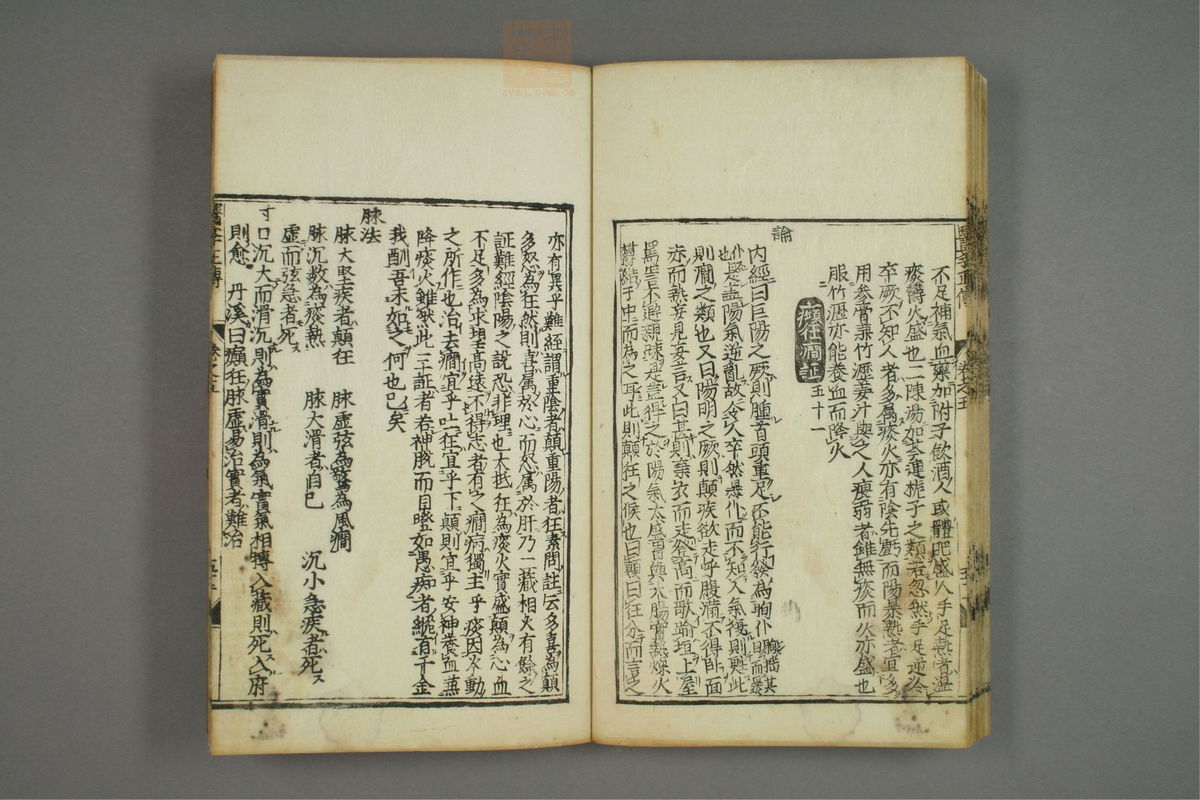 不足補氣血藥加附子飲酒人或體肥盛人手足熱者溼
痰欝火盛也二陳湯加芩連梔子之類若忽然手足逆冷
卒厥不知人者多属痰火亦有陰先虧而陽暴熱者宜多
用參膏兼竹瀝姜汁與之人瘦弱者雖無痰而火亦盛也
服竹瀝亦能養血而降火
癲狂癇証 五十一
論
內經曰巨陽之厥則腫首頭重足不能行發為眴仆
仆是盖陽氣逆亂故令人卒然暴仆而不知人氣復則甦此
則癎之類也又曰陽明之厥則癲疾欲走呼腹滿不得卧面
赤而熱妄見妄言又曰甚則棄衣而走登高而歌踰垣上屋
罵詈不避親踈是盖得之於陽氣太盛胃與大腸實熱燥火
欝結于中而為之耳此則癲狂之候也曰癲曰狂分而言之
亦有異乎難經謂重陰者顛重陽者狂素問註云多喜為顛
多怒為狂然則喜属於心而怒属於肝乃二藏相火有餘之
証難經陰陽之說恐非理也大抵狂為痰火實盛顛為心血
不足多為求望高遠不得志者有之癇病獨主乎痰因火動
之所作也治法癇宜乎吐狂宜乎下顛則宜乎安神養血兼
降痰火雖然此三証者若神脫而目瞪如愚痴者縱有千金
我酬吾未如之何也已矣
脉法
脉大堅疾者顛狂 脉虛弦為驚為風癇
脉沉數為痰熱 脉大滑者自巳 沉小急疾者死
虛而弦急者死
寸口沉大而滑沉則為實滑則為氣實氣相搏入藏則死入府
則愈 丹溪曰癲狂脉虛易治實者難治